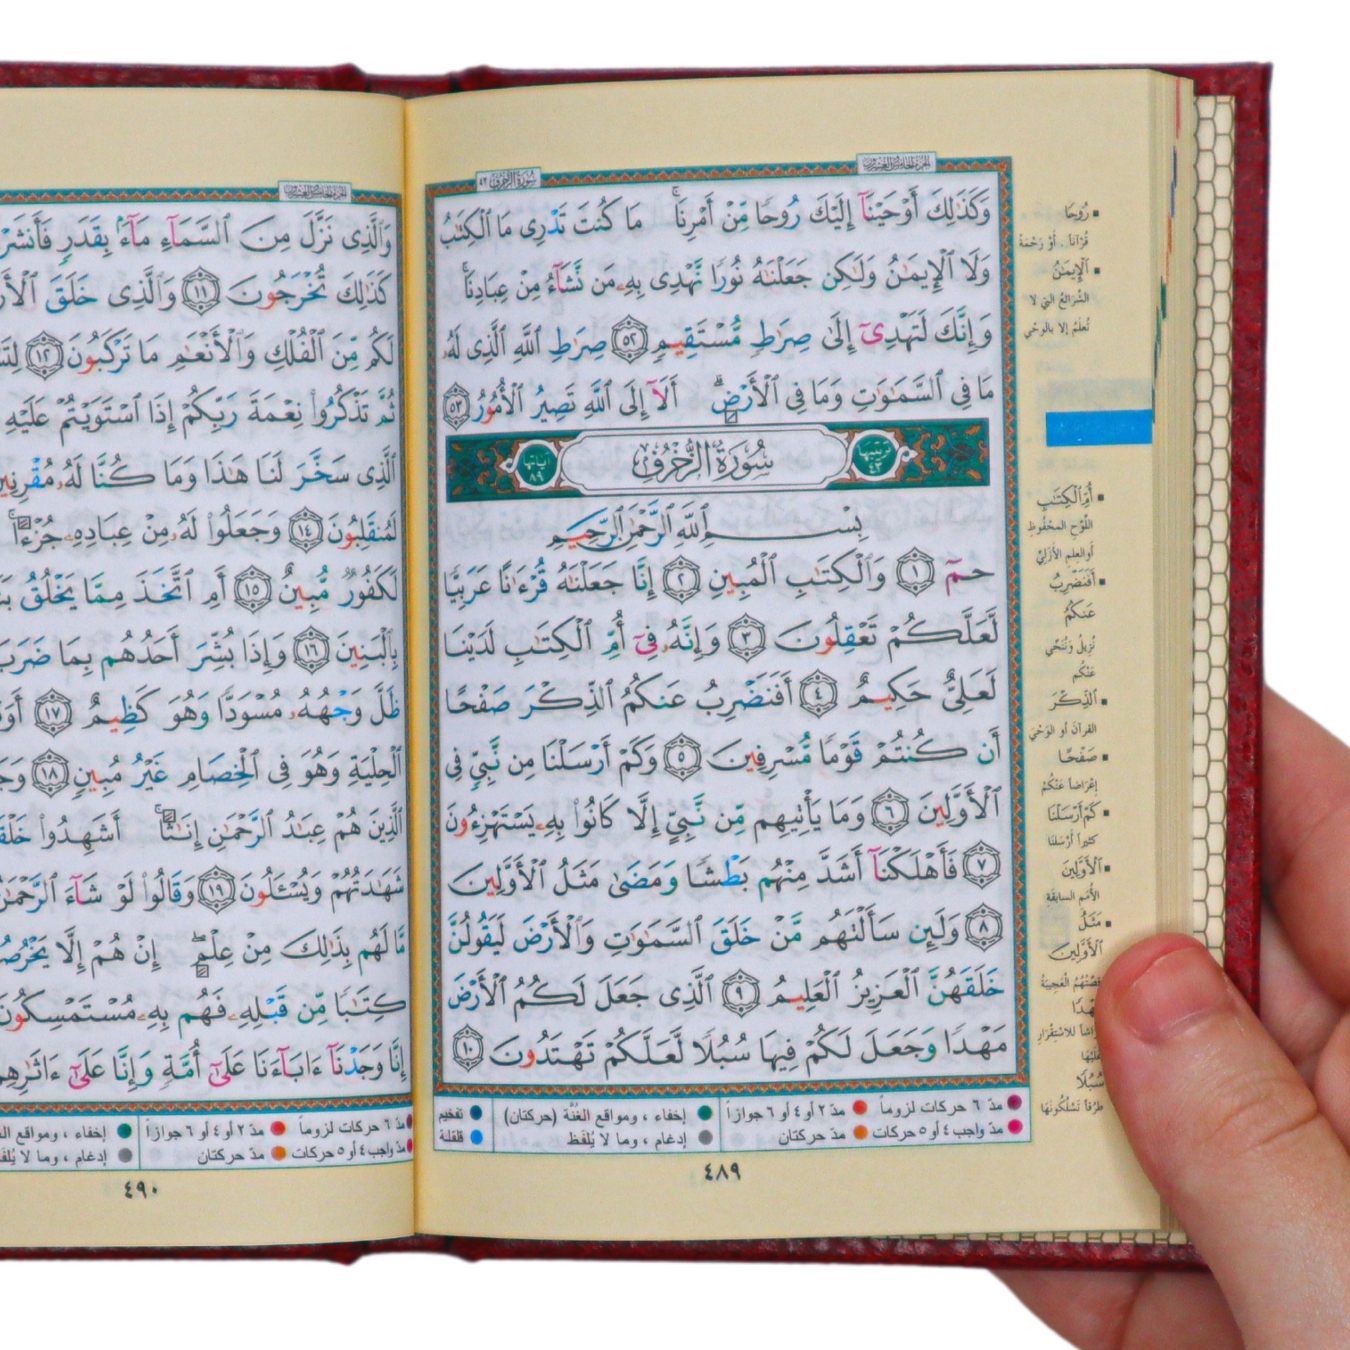 الجزء الخامس والعشرون
سورة الزخرف ٤٣
وَكَذَٰلِكَ أَوْحَيْنَآ إِلَيْكَ رُوحًا مِّنْ أَمْرِنَا ۚ مَا كُنتَ تَدْرِى مَا ٱلْكِتَٰبُ
وَلَا ٱلْإِيمَٰنُ وَلَٰكِن جَعَلْنَٰهُ نُورًا نَّهْدِى بِهِۦ مَن نَّشَآءُ مِنْ عِبَادِنَا ۚ
وَإِنَّكَ لَتَهْدِىٓ إِلَىٰ صِرَٰطٍ مُّسْتَقِيمٍ ٥٢ صِرَٰطِ ٱللَّهِ ٱلَّذِى لَهُۥ
مَا فِى ٱلسَّمَٰوَٰتِ وَمَا فِى ٱلْأَرْضِ ۗ أَلَآ إِلَى ٱللَّهِ تَصِيرُ ٱلْأُمُورُ ٥٣
ترتيبها ٤٣ سُورَةُ الزُّخْرُفِ آياتها ٨٩
بِسْمِ ٱللَّهِ ٱلرَّحْمَٰنِ ٱلرَّحِيمِ
حمٓ ١ وَٱلْكِتَٰبِ ٱلْمُبِينِ ٢ إِنَّا جَعَلْنَٰهُ قُرْءَٰنًا عَرَبِيًّا
لَّعَلَّكُمْ تَعْقِلُونَ ٣ وَإِنَّهُۥ فِىٓ أُمِّ ٱلْكِتَٰبِ لَدَيْنَا
لَعَلِىٌّ حَكِيمٌ ٤ أَفَنَضْرِبُ عَنكُمُ ٱلذِّكْرَ صَفْحًا
أَن كُنتُمْ قَوْمًا مُّسْرِفِينَ ٥ وَكَمْ أَرْسَلْنَا مِن نَّبِىٍّ فِى
ٱلْأَوَّلِينَ ٦ وَمَا يَأْتِيهِم مِّن نَّبِىٍّ إِلَّا كَانُوا۟ بِهِۦ يَسْتَهْزِءُونَ
٧ فَأَهْلَكْنَآ أَشَدَّ مِنْهُم بَطْشًا وَمَضَىٰ مَثَلُ ٱلْأَوَّلِينَ
٨ وَلَئِن سَأَلْتَهُم مَّنْ خَلَقَ ٱلسَّمَٰوَٰتِ وَٱلْأَرْضَ لَيَقُولُنَّ
خَلَقَهُنَّ ٱلْعَزِيزُ ٱلْعَلِيمُ ٩ ٱلَّذِى جَعَلَ لَكُمُ ٱلْأَرْضَ
مَهْدًا وَجَعَلَ لَكُمْ فِيهَا سُبُلًا لَّعَلَّكُمْ تَهْتَدُونَ ١٠
مدّ ٦ حركات لزوماً مدّ ٢ أو ٤ أو ٦ جوازاً إخفاء ، ومواقع الغُنَّة (حركتان) تفخيم
مدّ واجب ٤ أو ٥ حركات مدّ حركتان إدغام ، وما لا يُلفَظ قلقلة
٤٨٩
رُوحًا
قُرْآناً . أَوْ رَحْمَةً
ٱلْإِيمَٰنُ
الشَّرائعُ التي لا
تُعلَمُ إلا بالوحْي
أُمِّ ٱلْكِتَٰبِ
اللَّوْحِ المحْفُوظِ
أو العلمِ الأزَليِّ
أَفَنَضْرِبُ
عَنكُمُ
نُزيلُ ونُنَحِّي
عَنْكُم
ٱلذِّكْرَ
القرآنَ أو الوَحْيَ
صَفْحًا
إعْرَاضاً عَنْكُمْ
كَمْ أَرْسَلْنَا
كثيراً أَرْسَلنَا
ٱلْأَوَّلِينَ
الأُمَمِ السابقةِ
مَثَلُ
ٱلْأَوَّلِينَ
قصَّتُهُمْ العَجِيبَةُ
سُبُلًا
طُرُقاً تَسْلُكونَهَا
الجزء الخامس والعشرون
وَٱلَّذِى نَزَّلَ مِنَ ٱلسَّمَآءِ مَآءًۢ بِقَدَرٍ فَأَنشَرْ
كَذَٰلِكَ تُخْرَجُونَ ١١ وَٱلَّذِى خَلَقَ ٱلْأَزْ
لَكُم مِّنَ ٱلْفُلْكِ وَٱلْأَنْعَٰمِ مَا تَرْكَبُونَ ١٢ لِتَسْ
ثُمَّ تَذْكُرُوا۟ نِعْمَةَ رَبِّكُمْ إِذَا ٱسْتَوَيْتُمْ عَلَيْهِ
ٱلَّذِى سَخَّرَ لَنَا هَٰذَا وَمَا كُنَّا لَهُۥ مُقْرِنِينَ
لَمُنقَلِبُونَ ١٤ وَجَعَلُوا۟ لَهُۥ مِنْ عِبَادِهِۦ جُزْءًا ۚ
لَكَفُورٌ مُّبِينٌ ١٥ أَمِ ٱتَّخَذَ مِمَّا يَخْلُقُ بَ
بِٱلْبَنِينَ ١٦ وَإِذَا بُشِّرَ أَحَدُهُم بِمَا ضَرَبَ
ظَلَّ وَجْهُهُۥ مُسْوَدًّا وَهُوَ كَظِيمٌ ١٧ أَوَ
ٱلْحِلْيَةِ وَهُوَ فِى ٱلْخِصَامِ غَيْرُ مُبِينٍ ١٨ وَجَ
ٱلَّذِينَ هُمْ عِبَٰدُ ٱلرَّحْمَٰنِ إِنَٰثًا ۚ أَشَهِدُوا۟ خَلْقَ
شَهَٰدَتُهُمْ وَيُسْـَٔلُونَ ١٩ وَقَالُوا۟ لَوْ شَآءَ ٱلرَّحْمَٰنُ
مَّا لَهُم بِذَٰلِكَ مِنْ عِلْمٍ ۖ إِنْ هُمْ إِلَّا يَخْرُصُ
كِتَٰبًا مِّن قَبْلِهِۦ فَهُم بِهِۦ مُسْتَمْسِكُونَ
إِنَّا وَجَدْنَآ ءَابَآءَنَا عَلَىٰٓ أُمَّةٍ وَإِنَّا عَلَىٰٓ ءَاثَٰرِهِم
مدّ ٦ حركات لزوماً مدّ ٢ أو ٤ أو ٦ جوازاً إخفاء ، ومواقع
مدّ واجب ٤ أو ٥ حركات مدّ حركتان إدغام ، وما لا يُلفَظ
٤٩٠